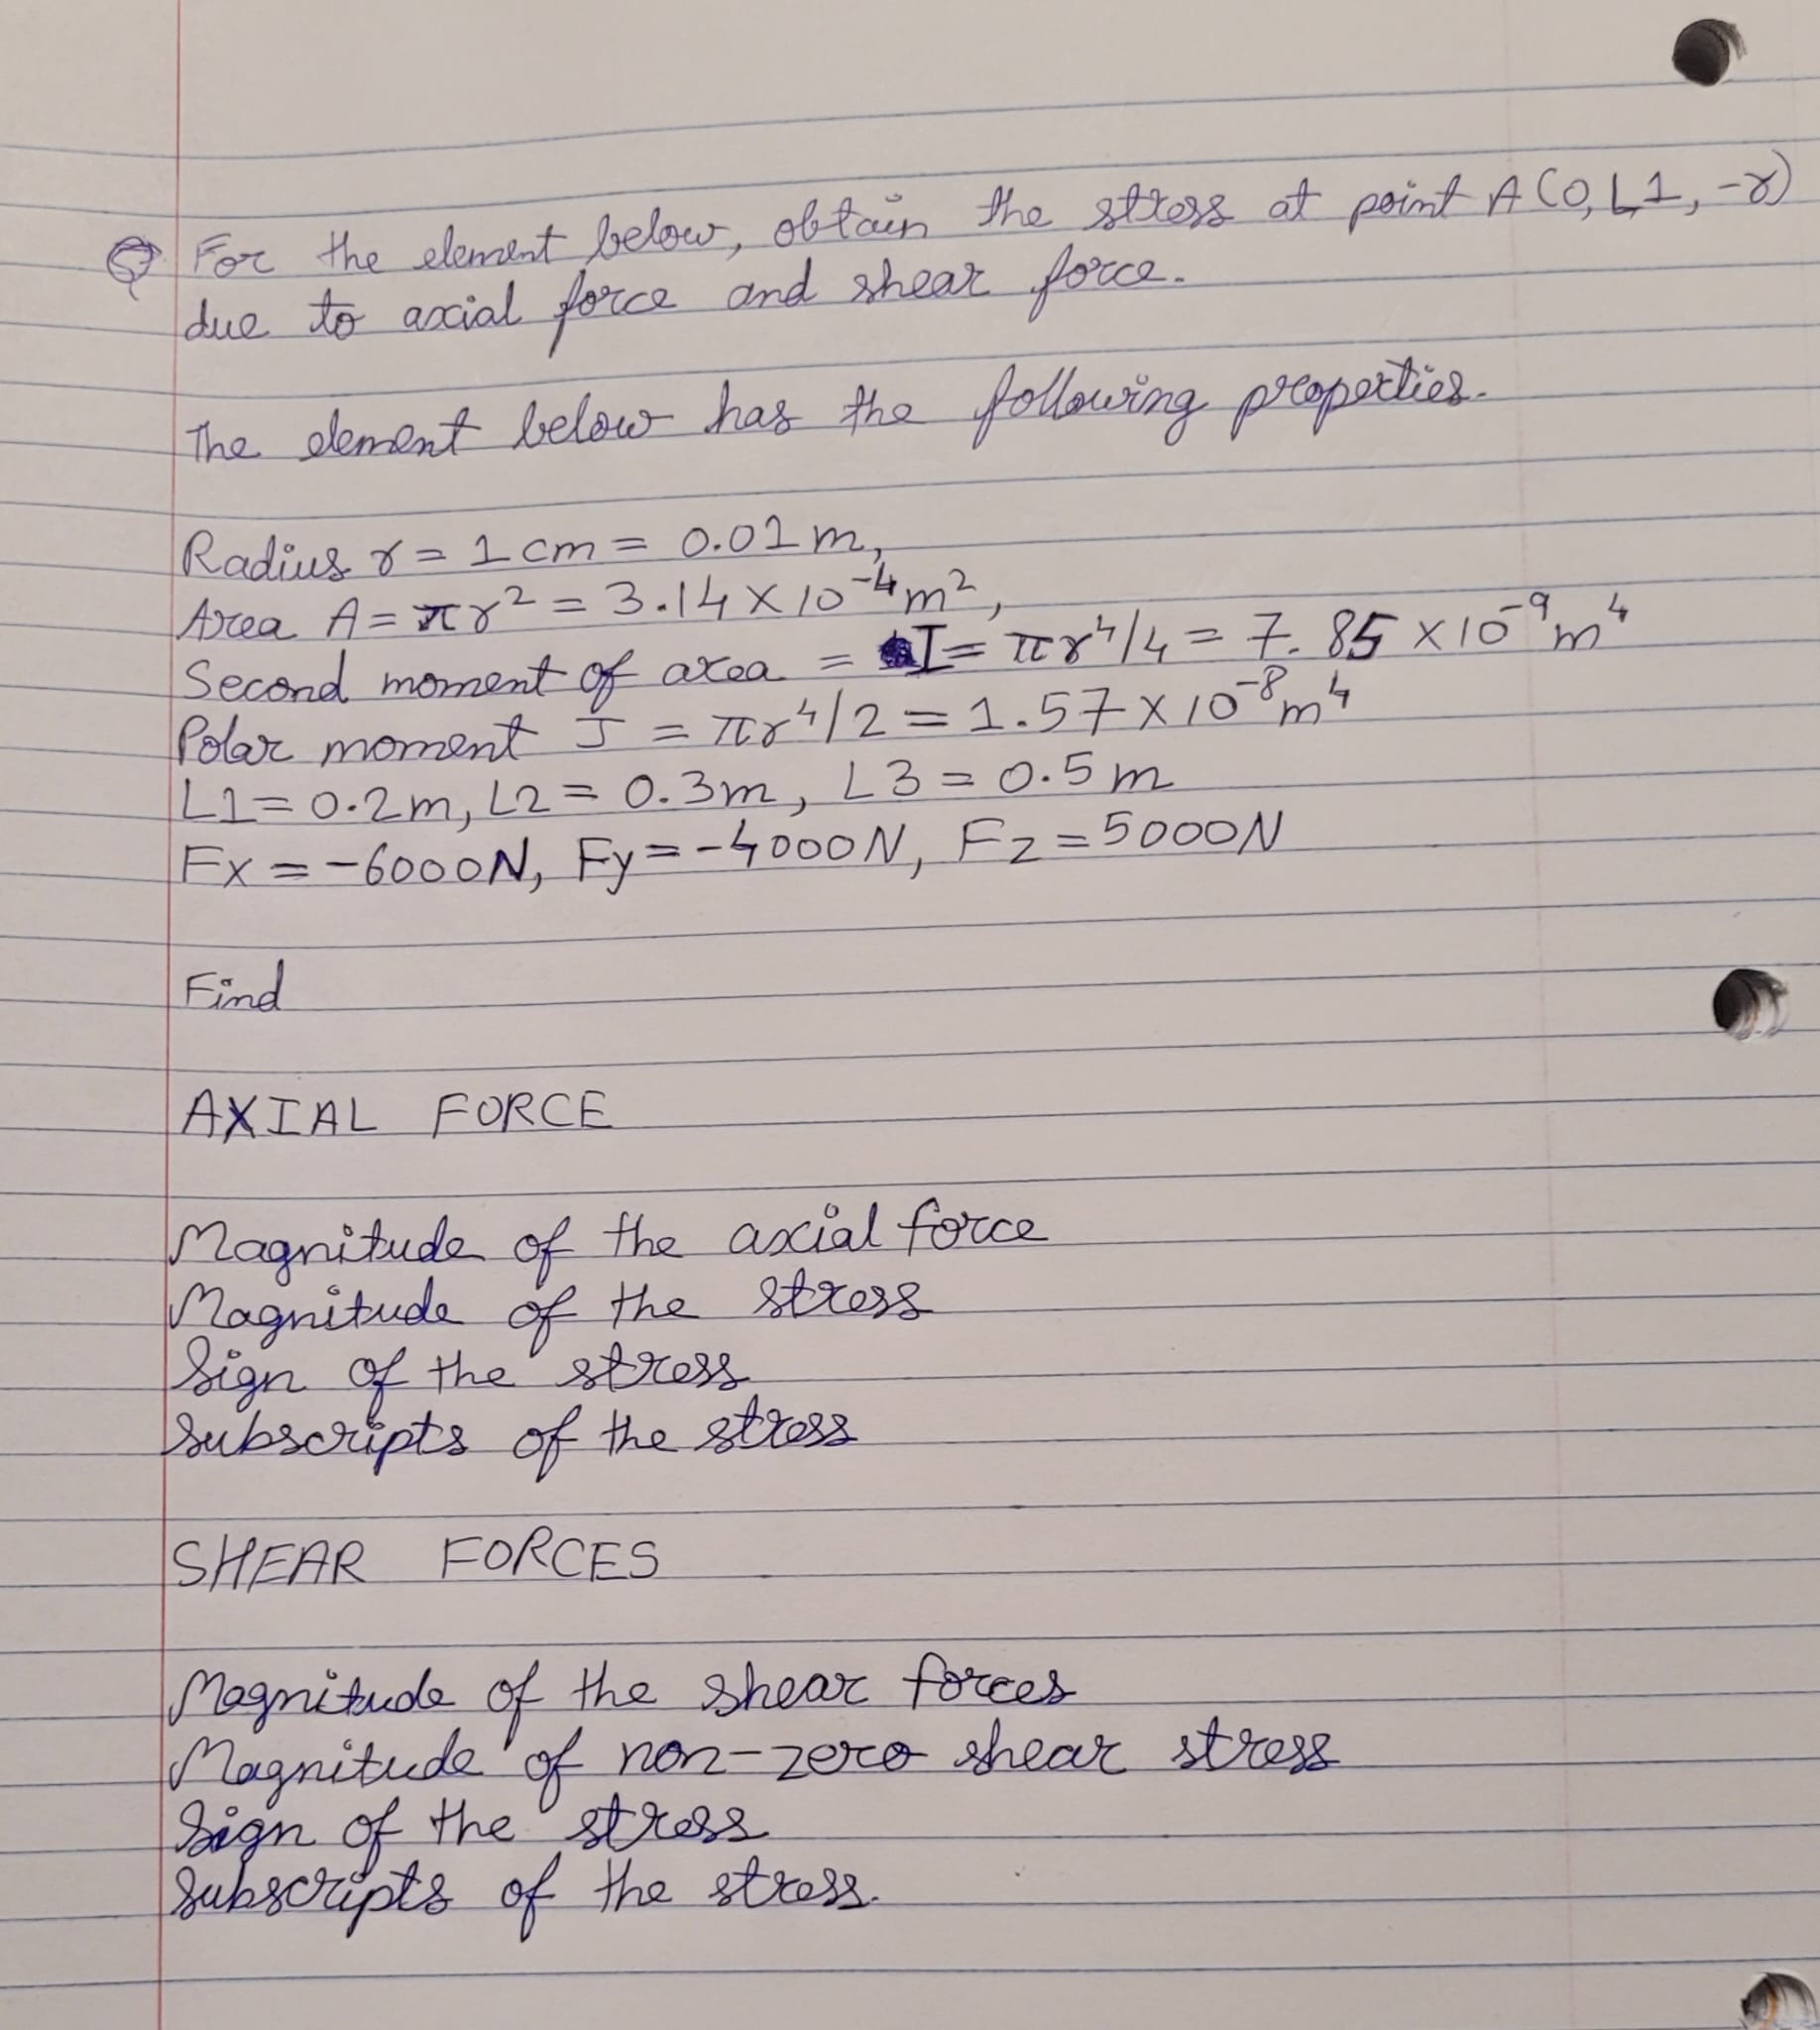 Q For the element below, obtain the stress at point A (0, L1, -r)
due to axial force and shear force.
The element below has the following properties.
Radius r = 1 cm = 0.01 m,
Area A = πr² = 3.14 × 10⁻⁴ m²,
Second moment of area = I = πr⁴/4 = 7.85 × 10⁻⁹ m⁴
Polar moment J = πr⁴/2 = 1.57 × 10⁻⁸ m⁴
L1 = 0.2 m, L2 = 0.3 m, L3 = 0.5 m
Fx = -6000 N, Fy = -4000 N, Fz = 5000 N
Find
AXIAL FORCE
Magnitude of the axial force
Magnitude of the stress
Sign of the stress
Subscripts of the stress
SHEAR FORCES
Magnitude of the shear forces
Magnitude of non-zero shear stress
Sign of the stress
Subscripts of the stress.